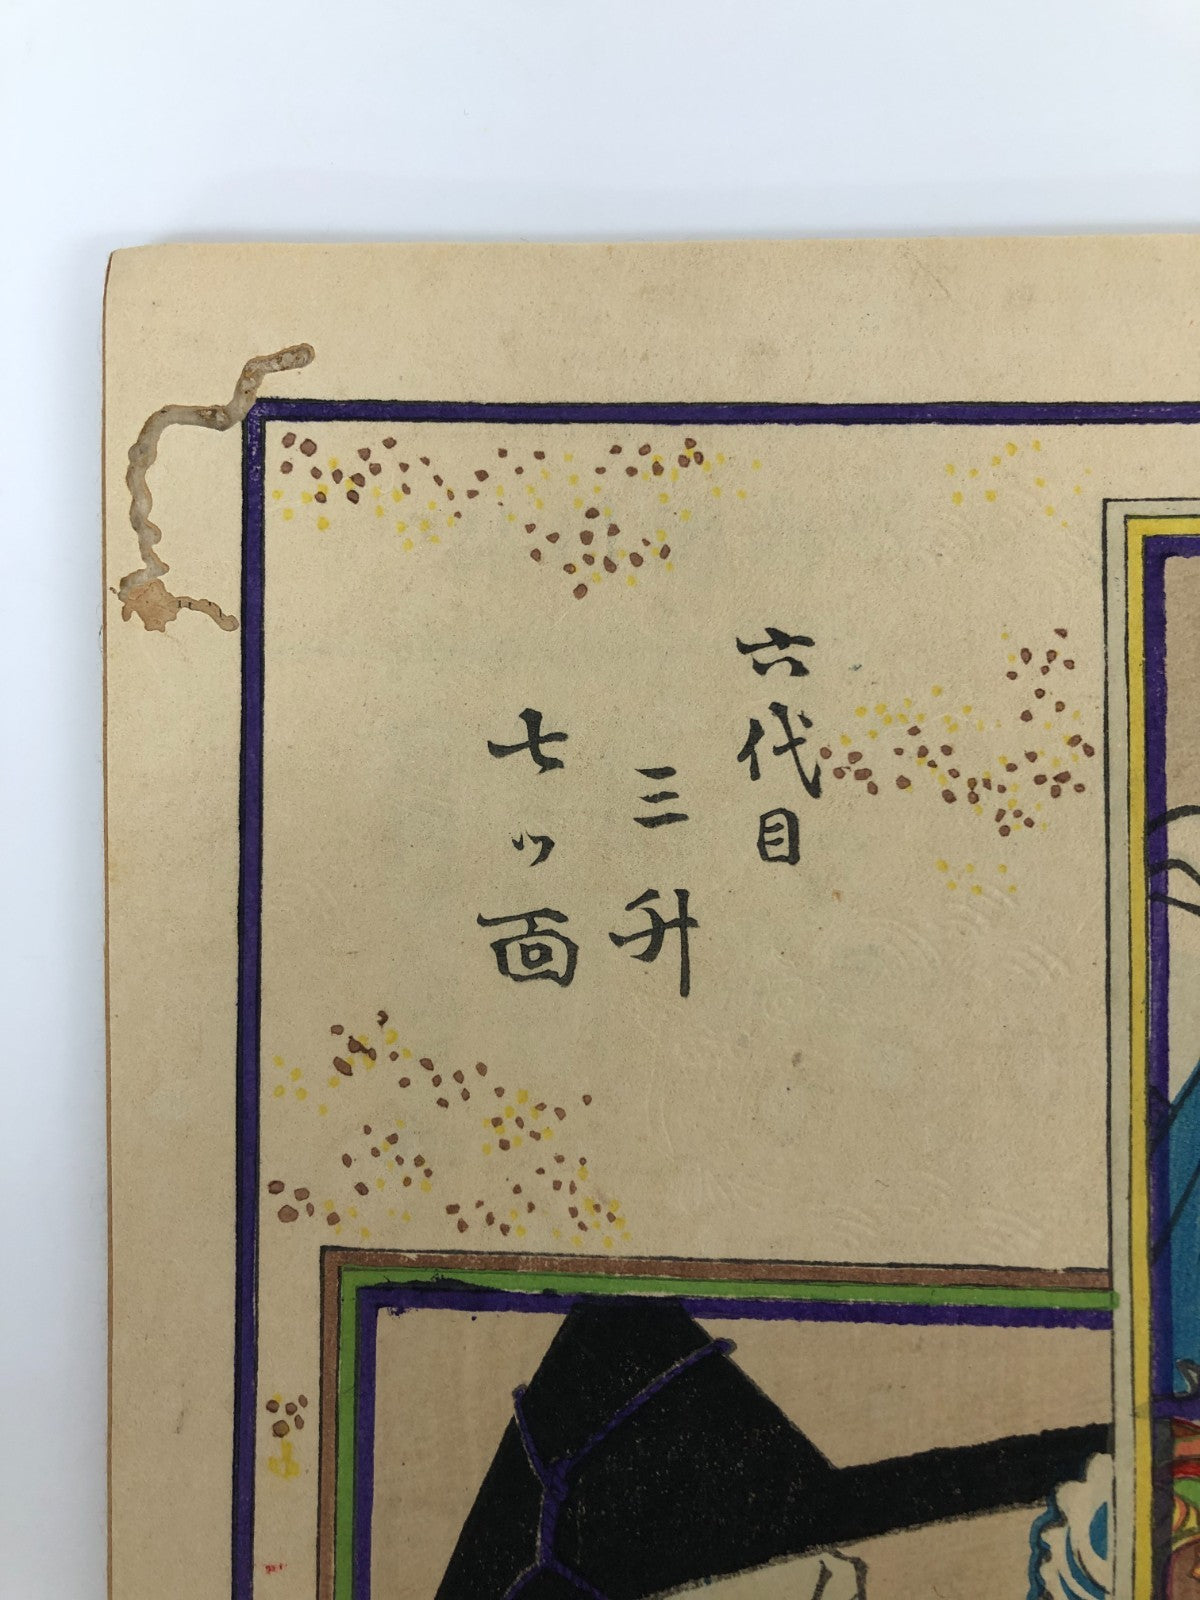 六代目
三升
七ッ面